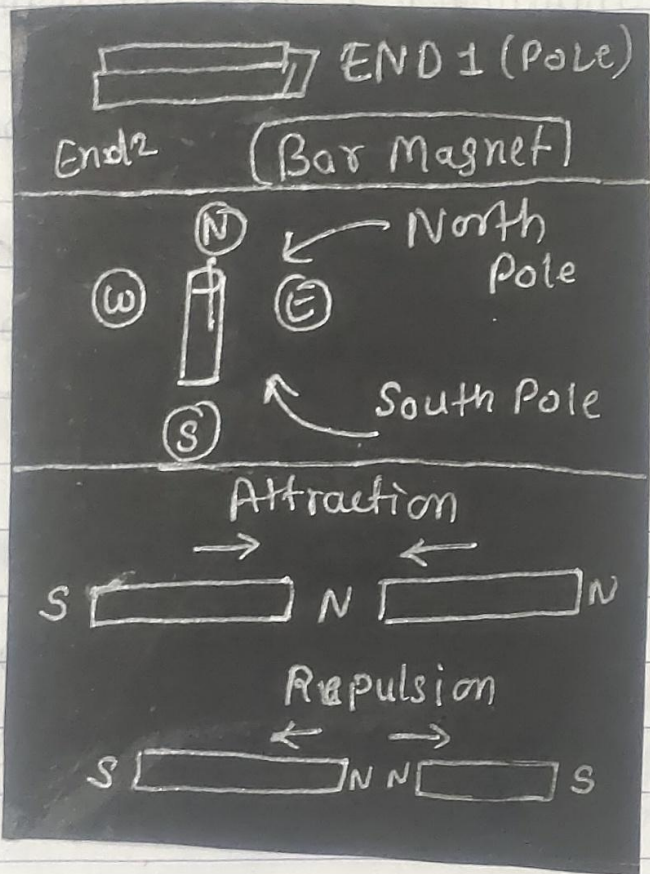 END 1 (POLE)
End2 (Bar Magnet)
N
North
Pole
W E
South Pole
S
Attraction
S N N
Repulsion
S N N S